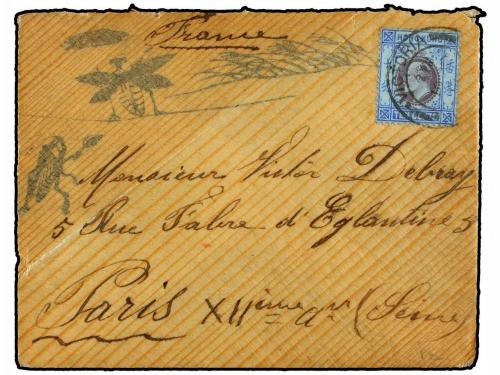 France
HONG KONG
VICTORIA
TEN CENTS
Monsieur Victor Debray
5 Rue Fabre d'Eglantine 5
Paris XIIème arr (Seine)